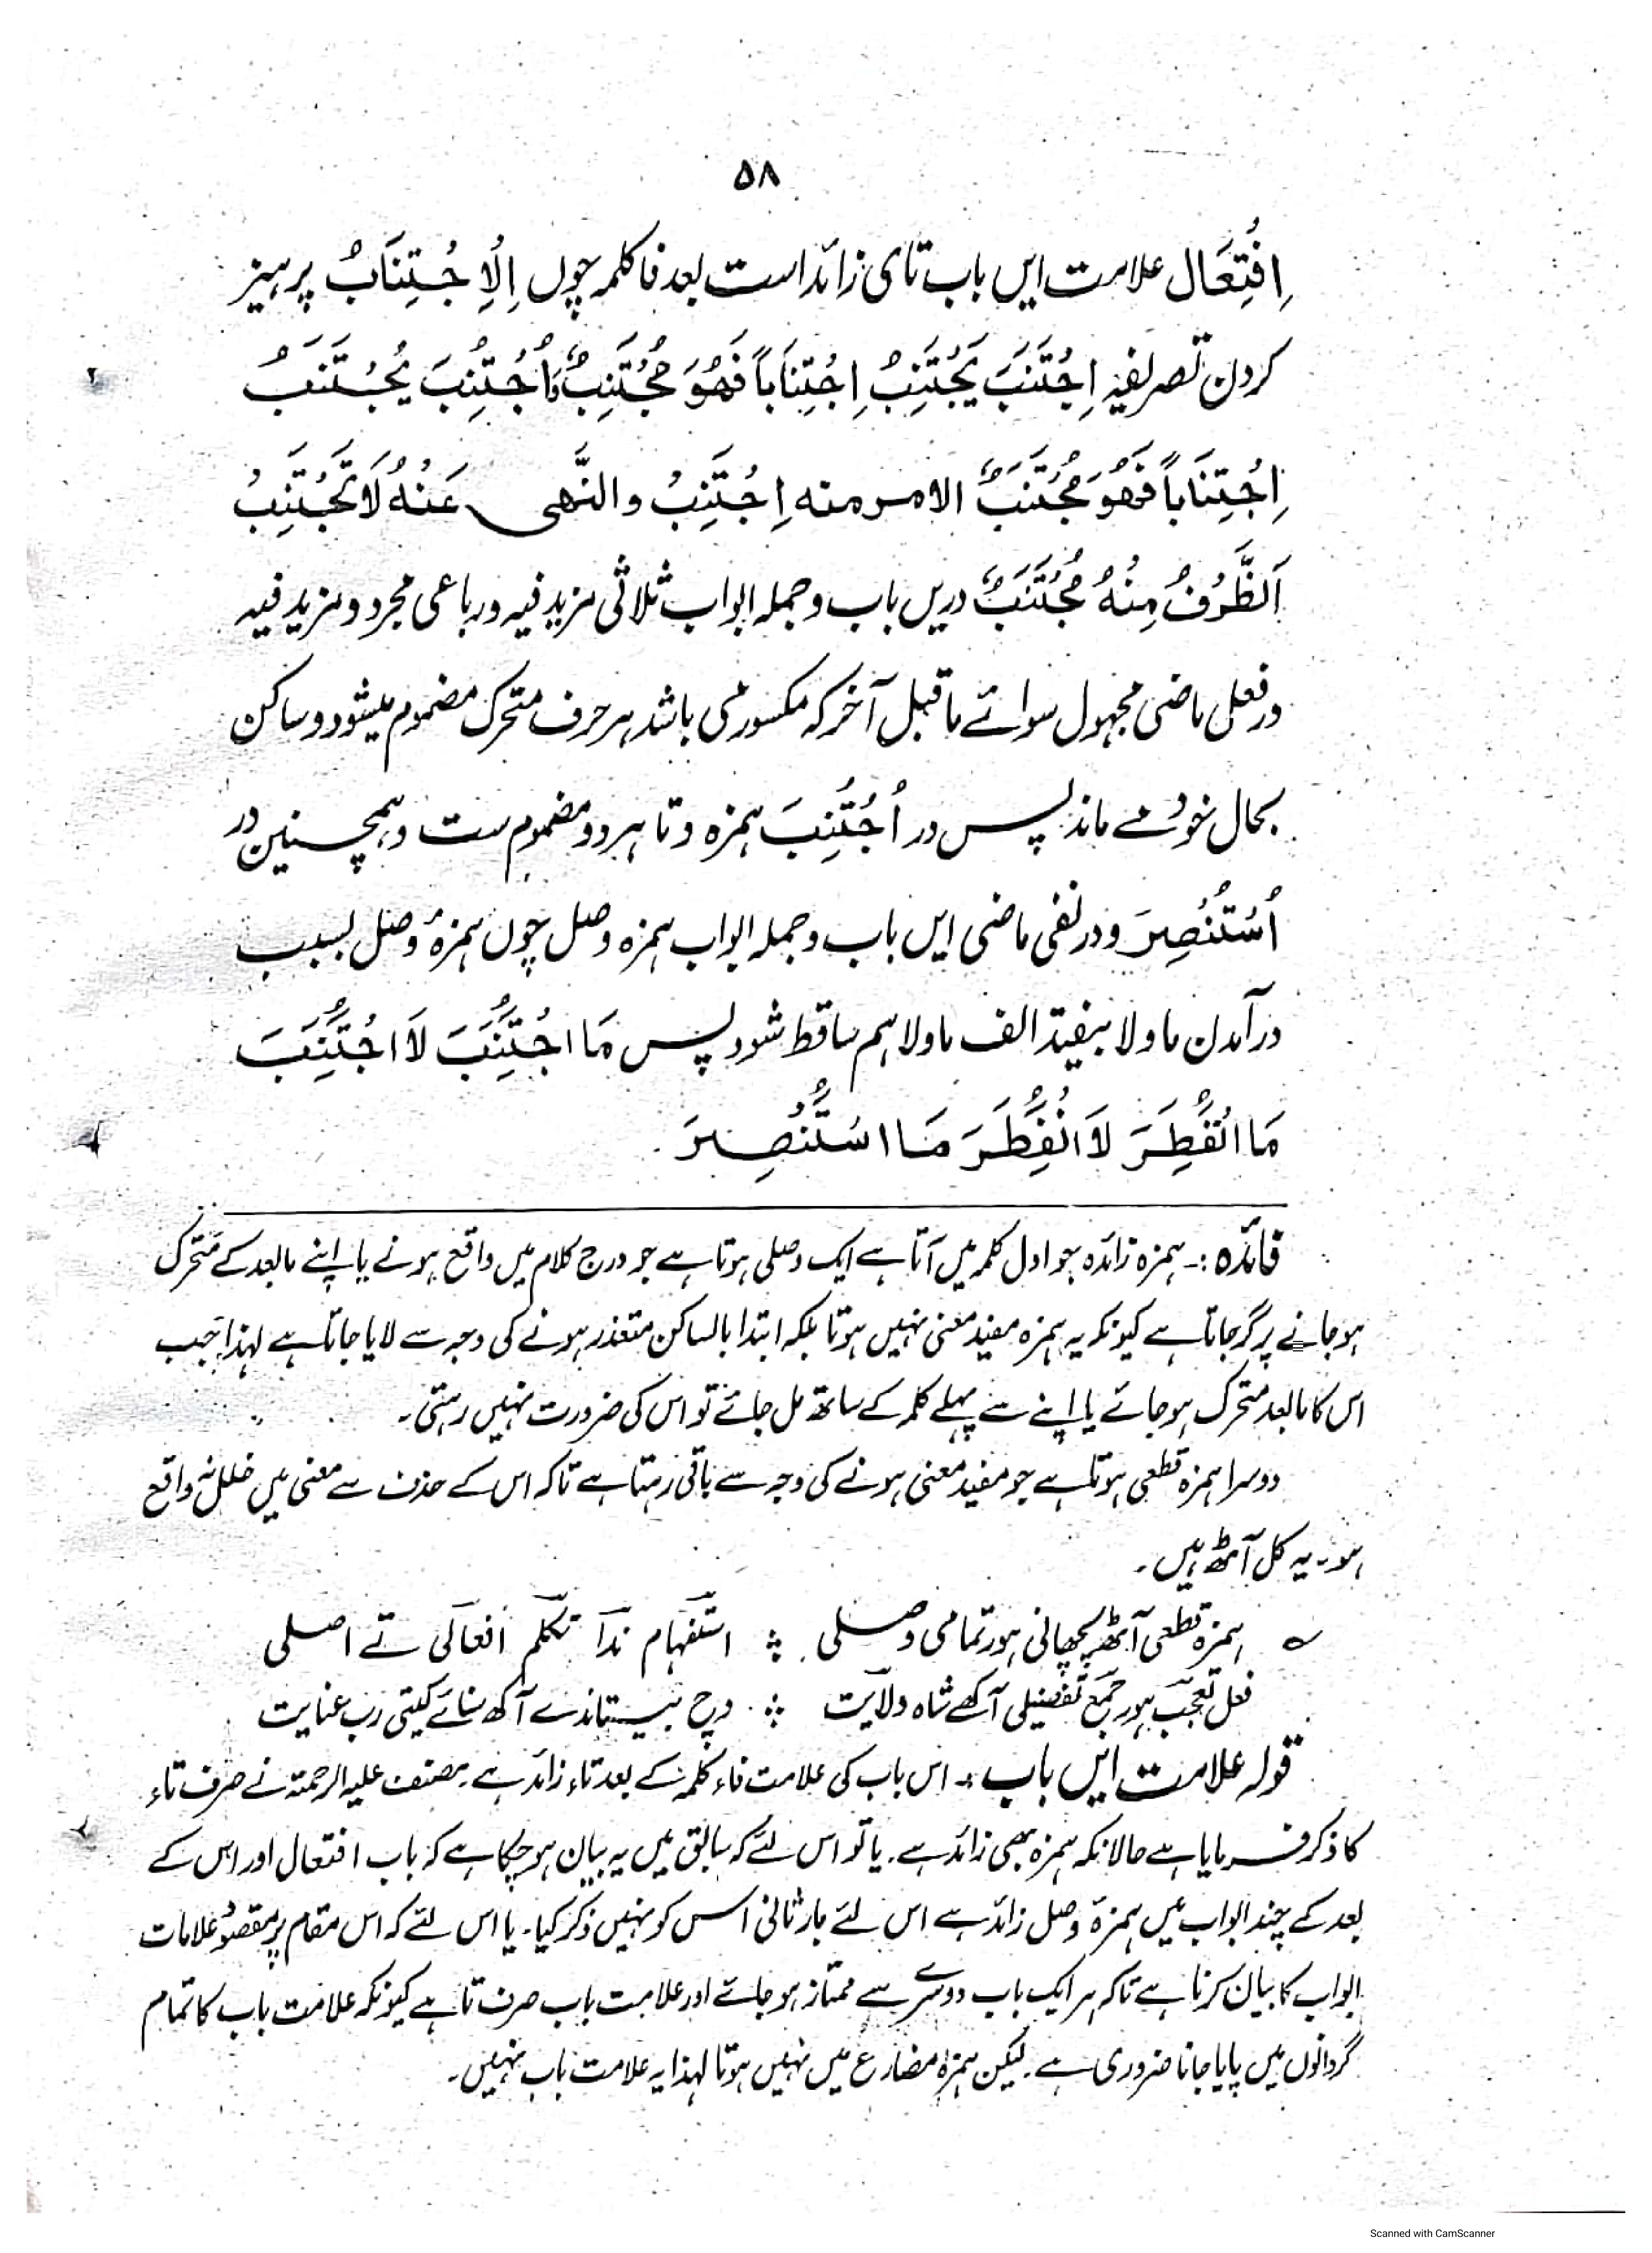 ۵۸
اِفْتِعَال علامت ایں باب تای زائد است بعد فا کلمہ چوں اَلْاِجْتِنَابُ پرہیز
کردن تصریفہ اِجْتَنَبَ یَجْتَنِبُ اِجْتِنَاباً فَھُوَ مُجْتَنِبٌ وَاُجْتُنِبَ یُجْتَنَبُ
اِجْتِنَاباً فَھُوَ مُجْتَنَبٌ الامر منہ اِجْتَنِبْ والنَّھی عَنْہُ لَا تَجْتَنِبْ
اَلظَّرْفُ مِنْہُ مُجْتَنَبٌ دریں باب و جملہ ابواب ثلاثی مزید فیہ و رباعی مجرد و مزید فیہ
در فعل ماضی مجہول سوائے ماقبل آخر کہ مکسور می باشد ہر حرف متحرک مضموم میشود و ساکن
بحال خود مے ماند پس در اُجْتُنِبَ ہمزہ و تا ہر دو مضموم ست و ہمچنین در
اُسْتُنْصِرَ و در نفی ماضی ایں باب و جملہ ابواب ہمزہ وصل چوں ہمزۂ وصل بسبب
در آمدن ما و لا بیفتد الف ما و لا ہم ساقط شود پس مَا اجْتَنَبَ لَا اجْتَنَبَ
مَا انْفَطَرَ لَا انْفَطَرَ مَا اسْتَنْصَرَ۔
فائدہ :۔ ہمزہ زائدہ جو اول کلمہ میں آتا ہے ایک وصلی ہوتا ہے جو درج کلام میں واقع ہونے یا اپنے مابعد کے متحرک
ہو جانے پر گر جاتا ہے کیونکہ یہ ہمزہ مفید معنی نہیں ہوتا بلکہ ابتدا بالساکن متعذر ہونے کی وجہ سے لایا جاتا ہے لہذا جب
اس کا مابعد متحرک ہو جائے یا اپنے سے پہلے کلمہ کے ساتھ مل جائے تو اس کی ضرورت نہیں رہتی۔
دوسرا ہمزہ قطعی ہوتا ہے جو مفید معنی ہونے کی وجہ سے باقی رہتا ہے تاکہ اس کے حذف سے معنی میں خلل نہ واقع
ہو۔ یہ کل آٹھ ہیں۔
ہمزہ قطعی آٹھ پچھانی ہور تمامی وصلی ؞ استفہام ندا تکلم افعالی تے اصلی
فعل تعجب ہور جمع تفضیلی آکھے شاہ ولایت ؞ وچ بیستاندے آکھ سنائے کیتی رب عنایت
قولہ علامت ایں باب :۔ اس باب کی علامت فاء کلمہ کے بعد تاء زائد ہے۔ مصنف علیہ الرحمۃ نے صرف تاء
کا ذکر فرمایا ہے حالانکہ ہمزہ بھی زائد ہے۔ یا تو اس لئے کہ سابق میں یہ بیان ہو چکا ہے کہ باب افتعال اور اس کے
بعد کے چند ابواب میں ہمزۂ وصل زائد ہے اس لئے بار ثانی اس کو نہیں ذکر کیا۔ یا اس لئے کہ اس مقام پر مقصود علامات
ابواب کا بیان کرنا ہے تاکہ ہر ایک باب دوسرے سے ممتاز ہو جائے اور علامت باب صرف تا ہے کیونکہ علامت باب کا تمام
گردانوں میں پایا جانا ضروری ہے۔ لیکن ہمزہ مضارع میں نہیں ہوتا لہذا یہ علامت باب نہیں۔
Scanned with CamScanner